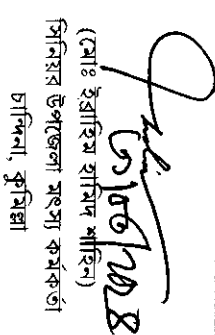 (মোঃ ইব্রাহিম হামিদ শাহিন)
সিনিয়র উপজেলা মৎস্য কর্মকর্তা
চান্দিনা, কুমিল্লা